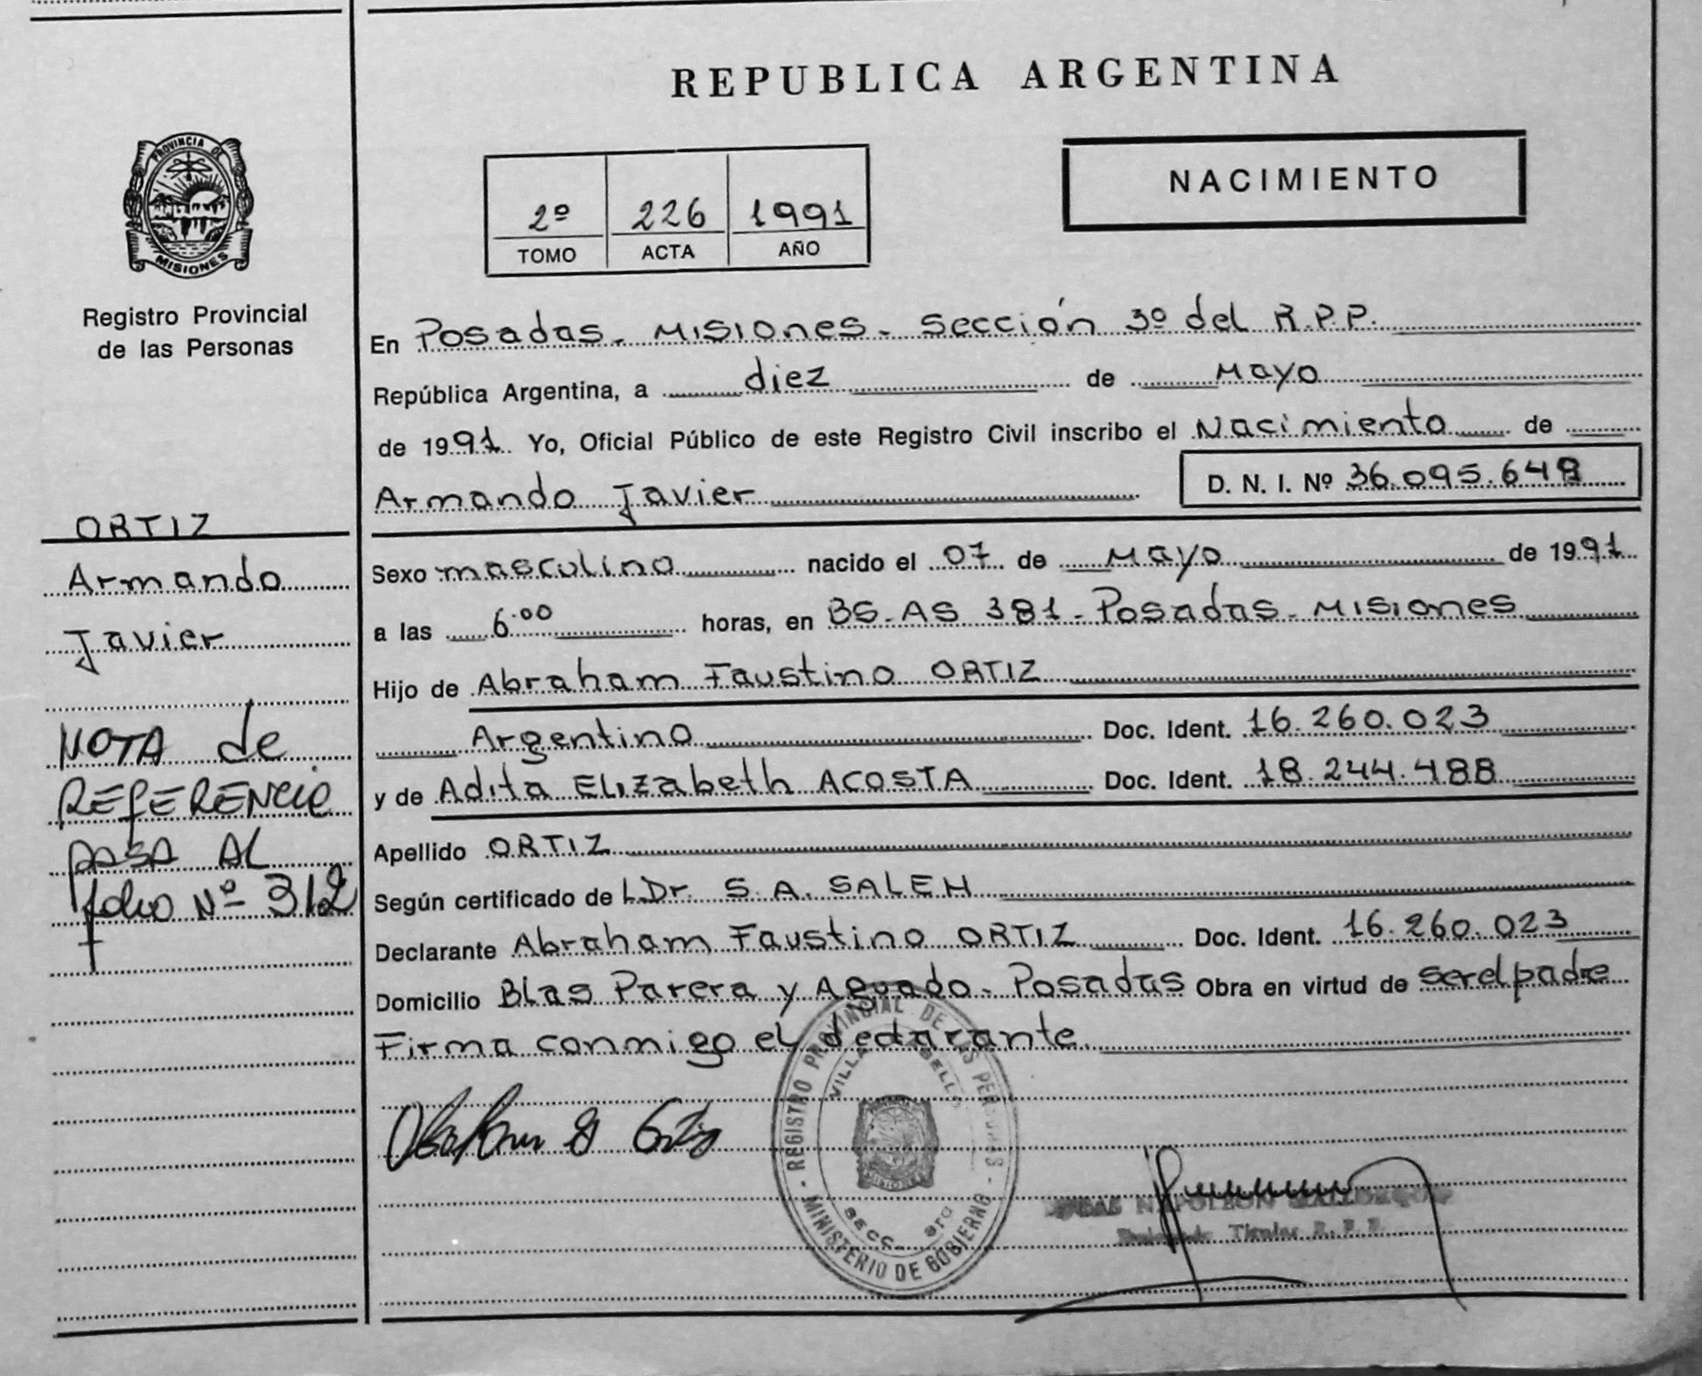 REPUBLICA ARGENTINA
NACIMIENTO
2º 226 1991
TOMO ACTA AÑO
PROVINCIA DE
MISIONES
Registro Provincial
de las Personas
ORTIZ
Armando
Javier
NOTA de
REFERENCIA
PASA AL
folio Nº 312
En Posadas - Misiones - Sección 3º del R.P.P.
República Argentina, a diez de Mayo
de 1991 Yo, Oficial Público de este Registro Civil inscribo el Nacimiento de
Armando Javier D. N. I. Nº 36.095.648
Sexo masculino nacido el 07 de Mayo de 1991
a las 6.00 horas, en BS-AS 381-Posadas-Misiones
Hijo de Abraham Faustino ORTIZ
Argentino Doc. Ident. 16.260.023
y de Adita Elizabeth ACOSTA Doc. Ident. 18.244.488
Apellido ORTIZ
Según certificado de L.Dr. S. A. SALEH
Declarante Abraham Faustino ORTIZ Doc. Ident. 16.260.023
Domicilio Blas Parera y Aguado - Posadas Obra en virtud de ser el padre
Firma conmigo el declarante
REGISTRO PROVINCIAL DE LAS PERSONAS
MINISTERIO DE GOBIERNO
VILLA
SECC. 3ra
MISIONES
NAPOLEON
Titular R.P.P.